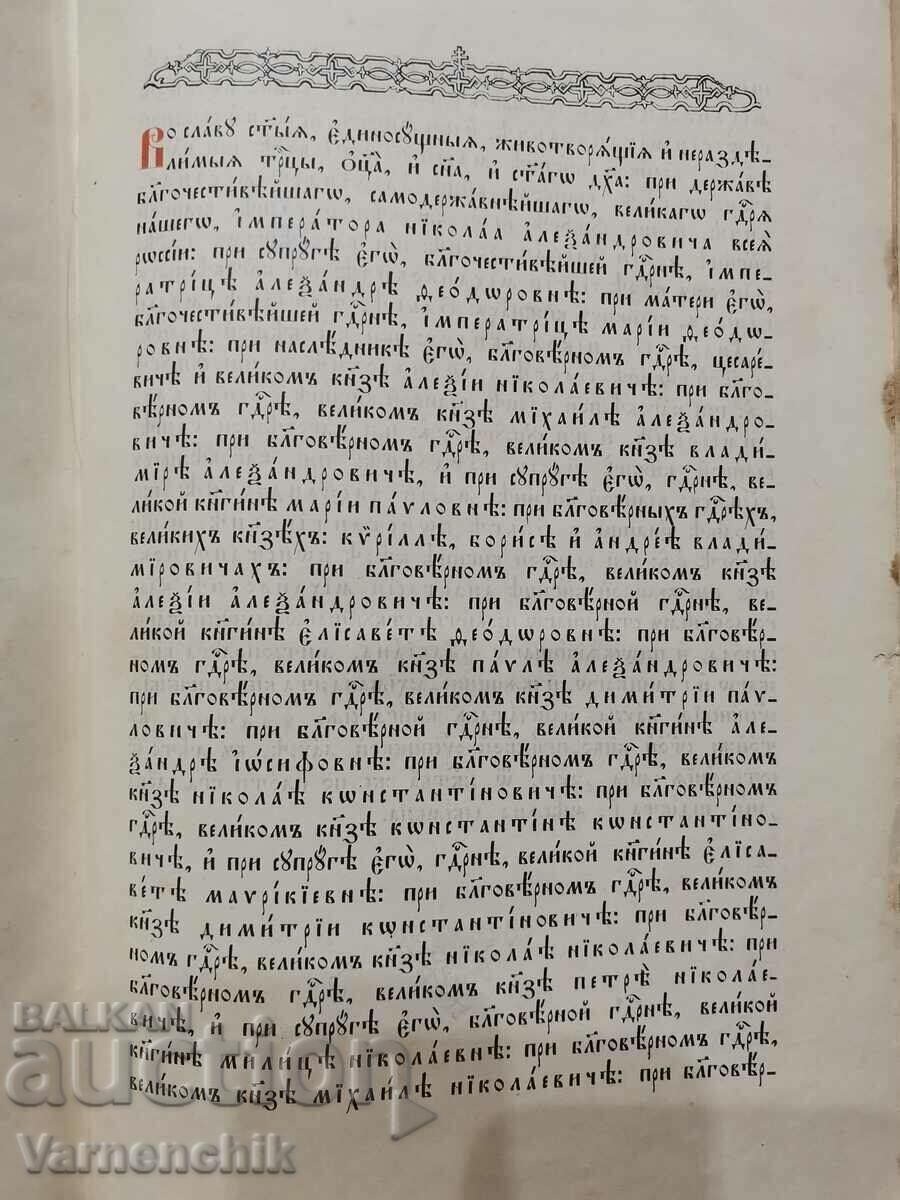 Во сла́вꙋ ст҃ы́ѧ, є҆диносꙋ́щныѧ, животворѧ́щїѧ и҆ неразд̾ѣ-
ли́мыѧ трⷪ҇цы, ѻ҆ц҃а̀, и҆ сн҃а, и҆ ст҃а́гѡ дх҃а: при держа́вѣ
благочести́вѣйшагѡ, самодержа́внѣйшагѡ, вели́кагѡ гдⷭ҇рѧ
на́шегѡ, і҆мпера́тора нїкола́а а҆леѯа́ндровича всеѧ̀
рѡссі́и: при сꙋпрꙋ́гѣ є҆гѡ̀, бл҃гочести́вѣйшей гдⷭ҇рнѣ, і҆мпе-
ратрі́цѣ а҆леѯа́ндрѣ ѳео́дѡровнѣ: при ма́тери є҆гѡ̀,
бл҃гочести́вѣйшей гдⷭ҇рнѣ, і҆мператрі́цѣ марі́и ѳео́дѡ-
ровнѣ: при наслѣ́дникѣ є҆гѡ̀, бл҃говѣ́рномъ гдⷭ҇рѣ, цесаре́-
вичѣ и҆ вели́комъ кн҃зѣ а҆леѯі́и нїкола́евичѣ: при бл҃го-
вѣ́рномъ гдⷭ҇рѣ, вели́комъ кн҃зѣ мїхаи́лѣ а҆леѯа́ндро-
вичѣ: при бл҃говѣ́рномъ гдⷭ҇рѣ, вели́комъ кн҃зѣ влади́-
мірѣ а҆леѯа́ндровичѣ, и҆ при сꙋпрꙋ́гѣ є҆гѡ̀, гдⷭ҇рнѣ, ве-
ли́кой кн҃ги́нѣ марі́и па́ѵловнѣ: при бл҃говѣ́рныхъ гдⷭ҇рѣхъ,
вели́кихъ кн҃зѣхъ: кѷрі́ллѣ, бори́сѣ и҆ а҆ндре́ѣ влади́-
міровичахъ: при бл҃говѣ́рномъ гдⷭ҇рѣ, вели́комъ кн҃зѣ
а҆леѯі́и а҆леѯа́ндровичѣ: при бл҃говѣ́рной гдⷭ҇рнѣ, ве-
ли́кой кн҃ги́нѣ є҆лїсаве́тѣ ѳео́дѡровнѣ: при бл҃говѣ́р-
номъ гдⷭ҇рѣ, вели́комъ кн҃зѣ па́ѵлѣ а҆леѯа́ндровичѣ:
при бл҃говѣ́рномъ гдⷭ҇рѣ, вели́комъ кн҃зѣ дими́трїи па́ѵ-
ловичѣ: при бл҃говѣ́рной гдⷭ҇рнѣ, вели́кой кн҃ги́нѣ а҆ле-
ѯа́ндрѣ і҆ѡ́сифовнѣ: при бл҃говѣ́рномъ гдⷭ҇рѣ, вели́комъ
кн҃зѣ нїкола́ѣ кѡнстанті́новичѣ: при бл҃говѣ́рномъ
гдⷭ҇рѣ, вели́комъ кн҃зѣ кѡнстанті́нѣ кѡнстанті́но-
вичѣ, и҆ при сꙋпрꙋ́гѣ є҆гѡ̀, гдⷭ҇рнѣ, вели́кой кн҃ги́нѣ є҆лїса-
ве́тѣ маѵрі́кїевнѣ: при бл҃говѣ́рномъ гдⷭ҇рѣ, вели́комъ
кн҃зѣ дими́трїи кѡнстанті́новичѣ: при бл҃говѣ́р-
номъ гдⷭ҇рѣ, вели́комъ кн҃зѣ нїкола́ѣ нїкола́евичѣ: при
бл҃говѣ́рномъ гдⷭ҇рѣ, вели́комъ кн҃зѣ петрѣ̀ нїкола́е-
вичѣ, и҆ при сꙋпрꙋ́гѣ є҆гѡ̀, бл҃говѣ́рной гдⷭ҇рнѣ, вели́кой
кн҃ги́нѣ мили́цѣ нїкола́евнѣ: при бл҃говѣ́рномъ гдⷭ҇рѣ,
вели́комъ кн҃зѣ мїхаи́лѣ нїкола́евичѣ: при бл҃говѣ́р-
BALKAN
auction
Varnenchik